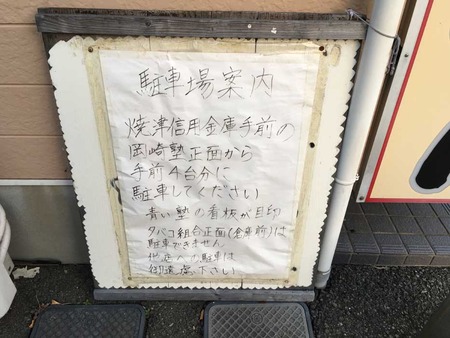 駐車場案内
焼津信用金庫手前の
岡崎塾正面から
手前4台分に
駐車してください
青い塾の看板が目印
タバコ組合正面(倉庫前)は
駐車できません
他店への駐車は
御遠慮下さい